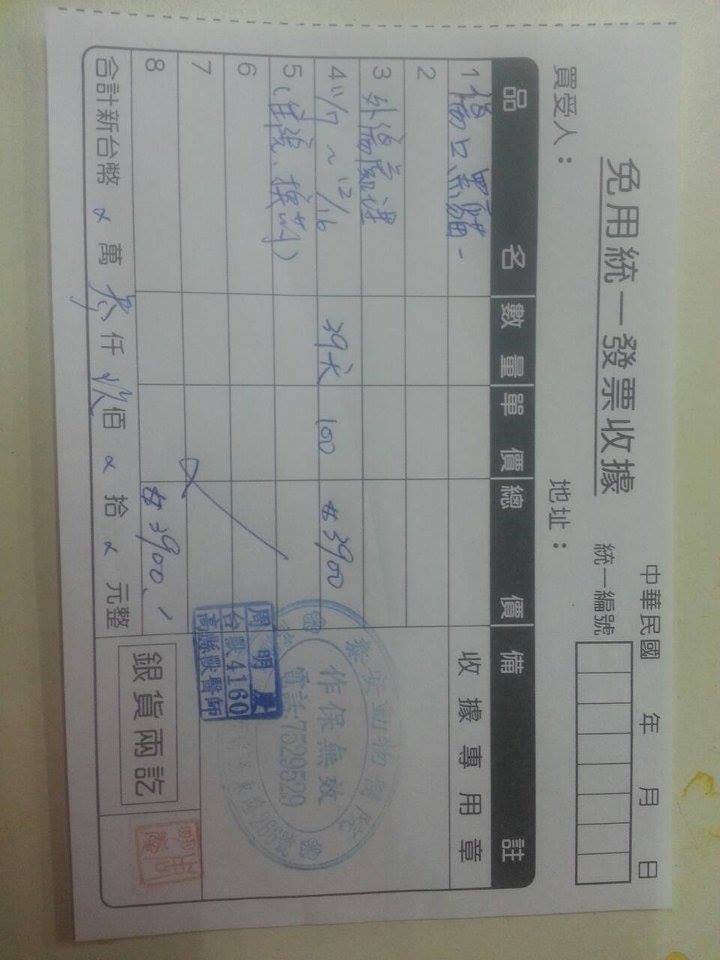 免用統一發票收據
中華民國 年 月 日
統一編號
買受人： 地址：
品名 數量 單價 總價 備註
1 傷口黑貓
2
3 外傷處理
4 11/7～12/16 39天 100 $3900
5 (住院、換葯)
6
7
8 $3900
合計新台幣 萬 參仟 玖佰 拾 元整
收據專用章
泰安動物醫院
作保無效
電話:7529529
周明
台獸4160
高縣獸醫師
銀貨兩訖